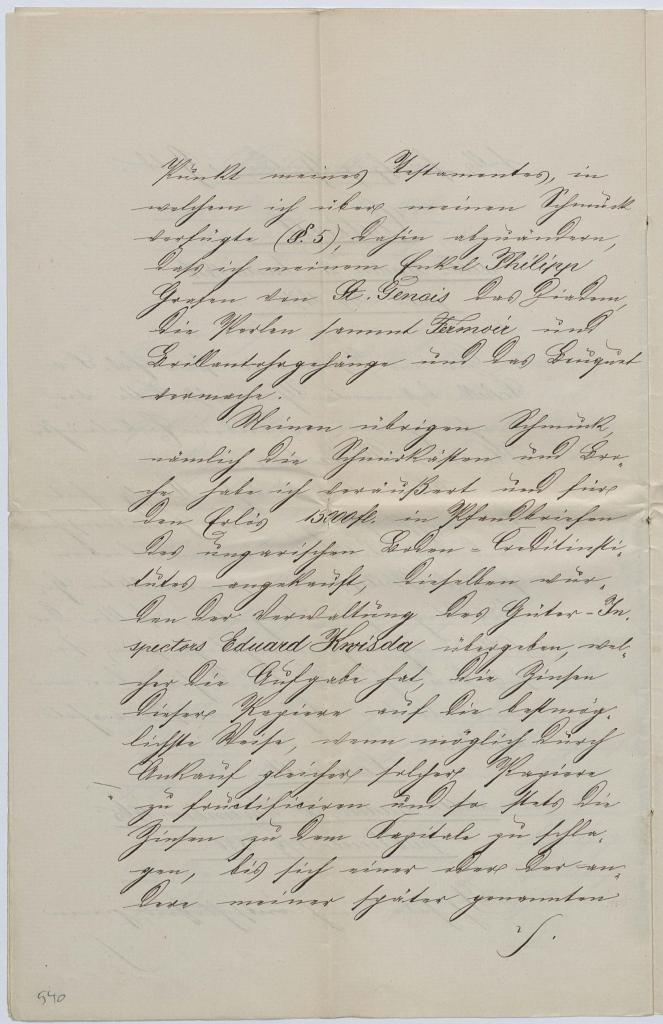 Punkt meines Testamentes, in
welchem ich über meinen Schmuck
verfügte (P. 5), dahin abzuändern,
daß ich meinem Enkel Philipp
Grafen von St. Genois das Diadem,
die Perlen sammt Fermoir und
Brillantohrgehänge und das Bouquet
vermache.
Meinen übrigen Schmuck,
nämlich die Schnürkästen und Bro-
che habe ich veräußert und für
den Erlös 15000 fl. in Pfandbriefen
des ungarischen Boden-Creditinsti-
tutes angekauft, dieselben wur-
den der Verwaltung des Güter-In-
spectors Eduard Kwisda übergeben, wel-
cher die Aufgabe hat, die Zinsen
dieser Papiere auf die bestmög-
lichste Weise, wenn möglich durch
Ankauf gleicher solcher Papiere
zu fructificiren und so stets die
Zinsen zu dem Kapitale zu schla-
gen, bis sich einer oder der an-
dere meiner später genannten
540